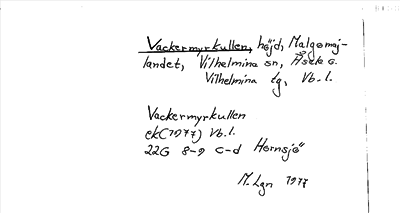 Vackermyrkullen, höjd, Malgomaj-
landet, Vilhelmina sn, Åsele c.
Vilhelmina tg, Vb. l.
Vackermyrkullen
ek(1977) Vb. l.
22G 8-9 c-d Hornsjö
M. Lgn 1977